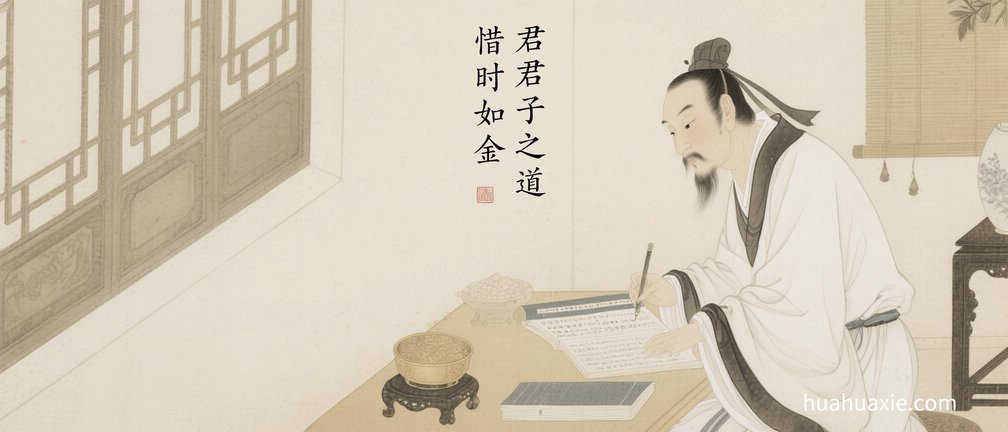 君君子之道
惜时如金
huahuaxie.com